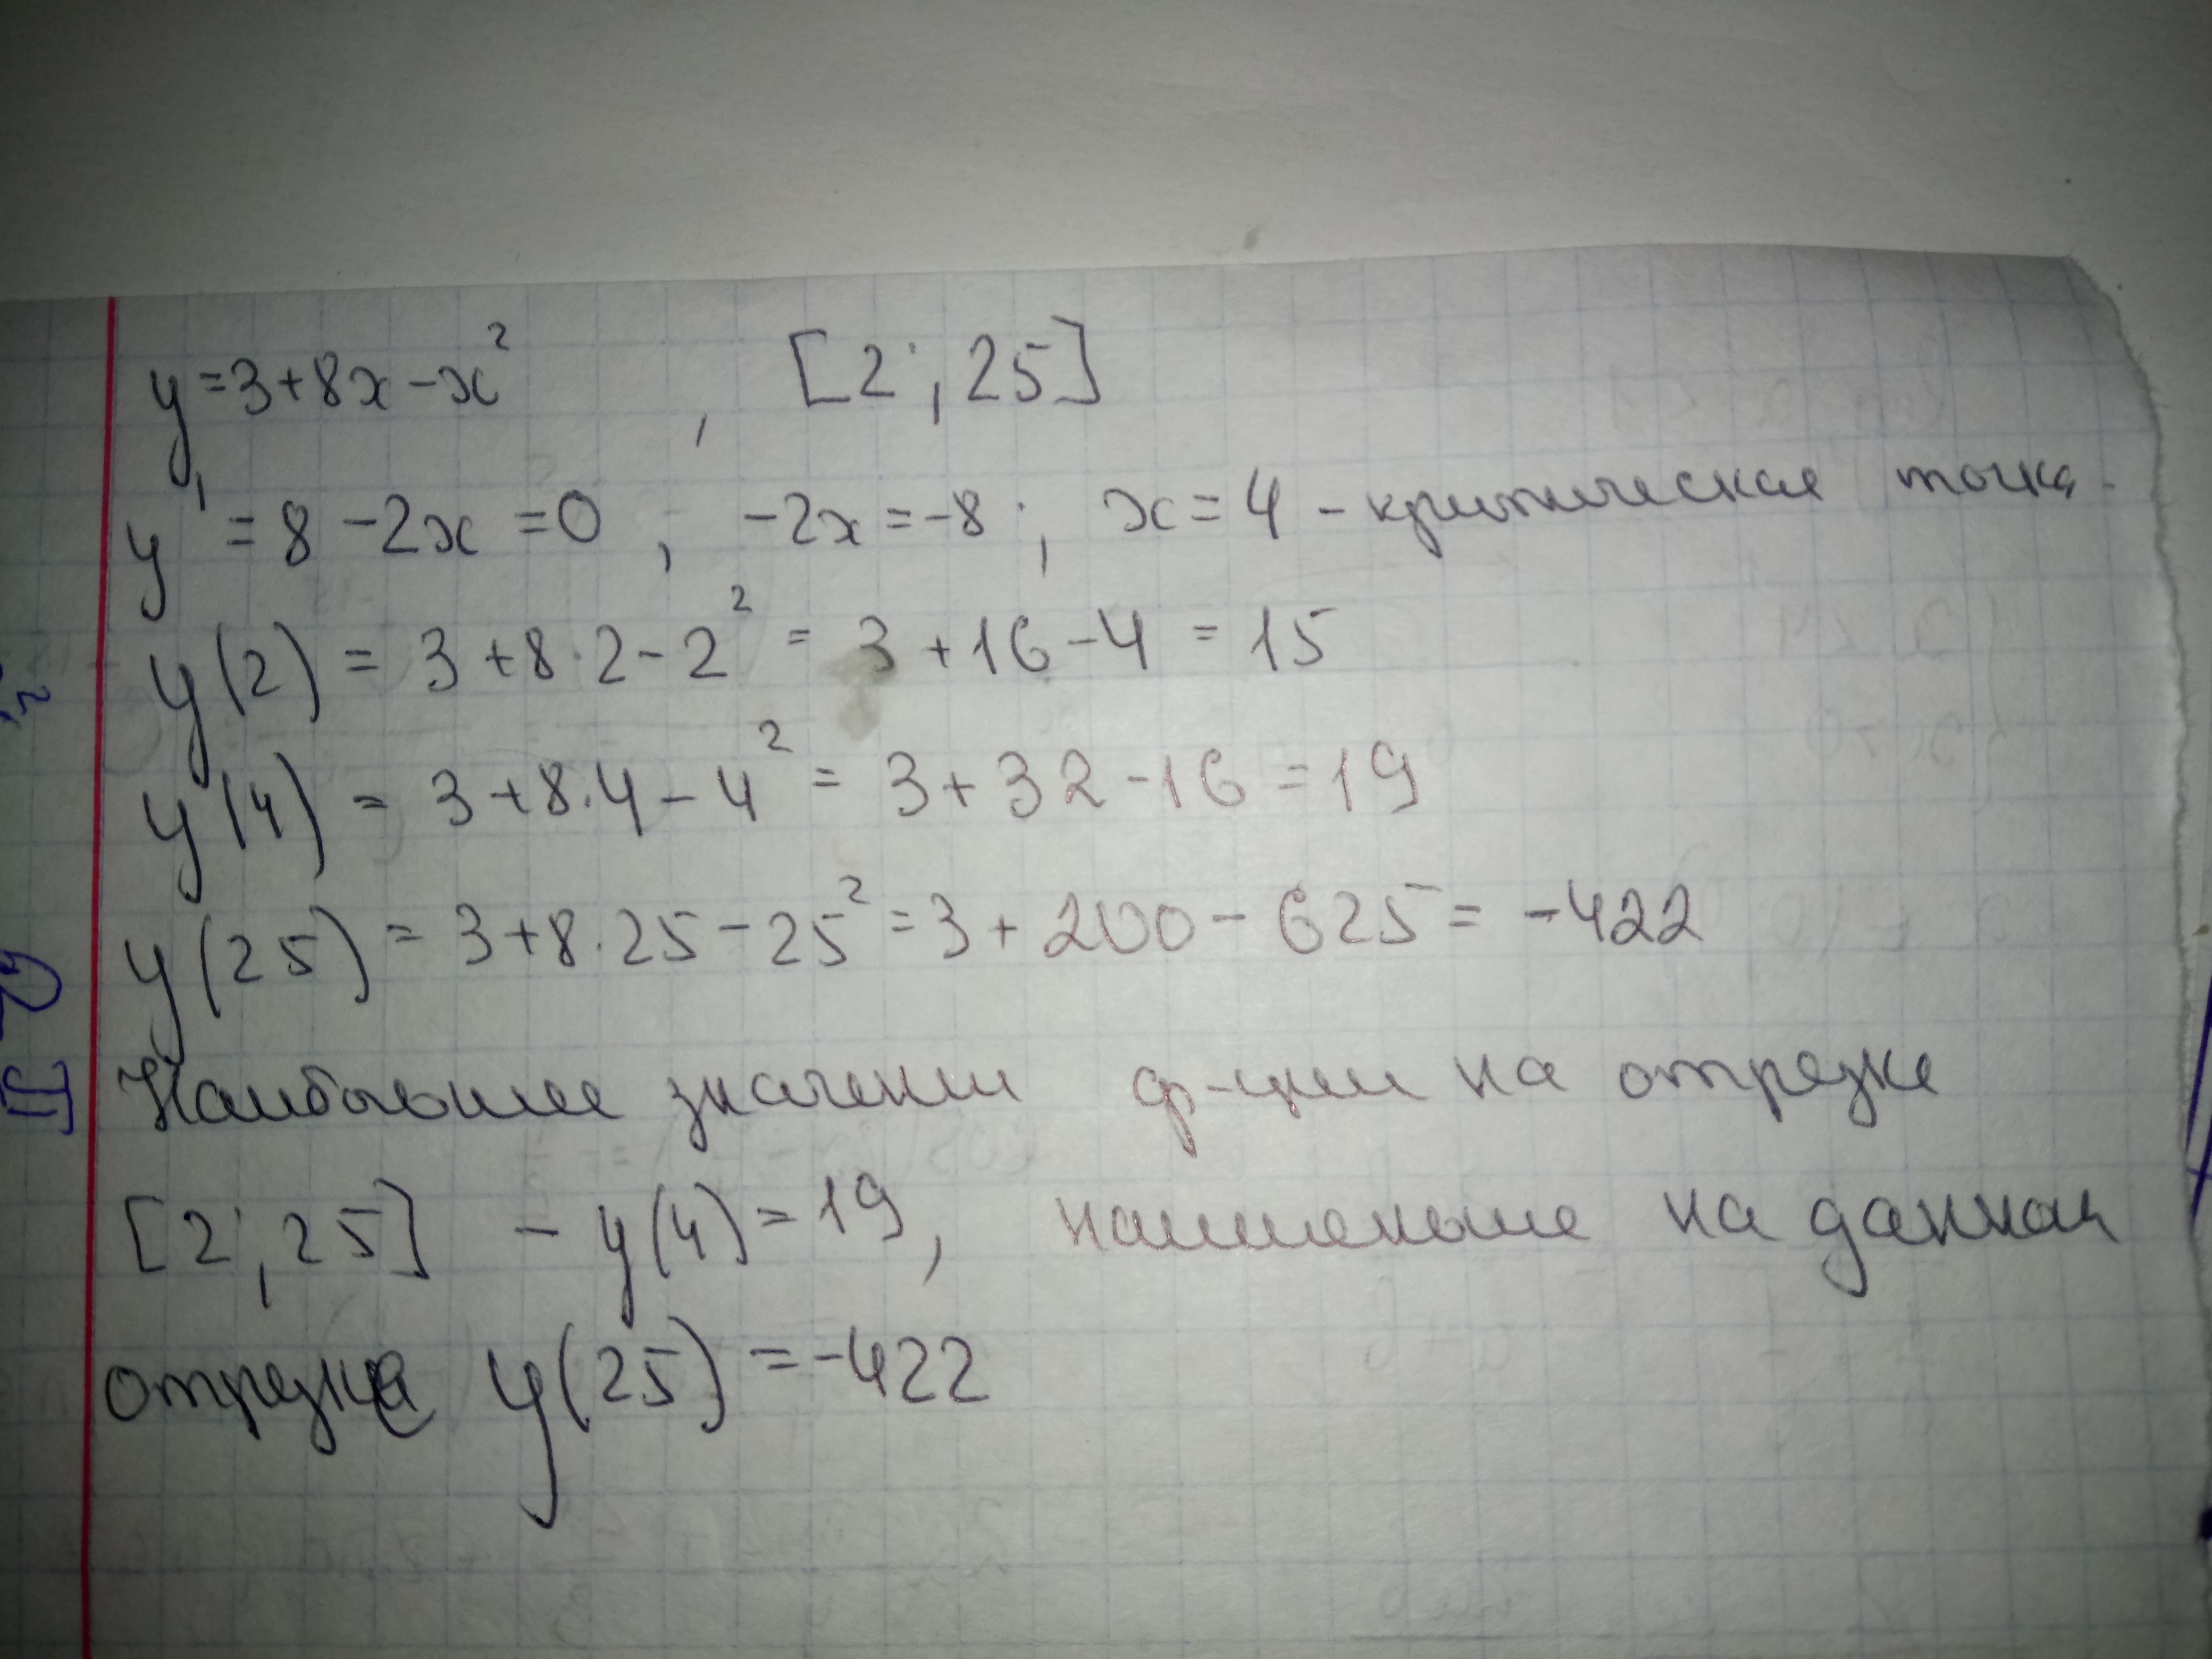 y=3+8x-x² , [2; 25]
y' = 8-2x=0, -2x=-8; x=4 - критическая точка.
y(2) = 3+8·2-2² = 3+16-4 = 15
y(4) = 3+8·4-4² = 3+32-16=19
y(25) = 3+8·25-25²=3+200-625=-422
Наибольшее значении ф-ции на отрезке
[2; 25] - y(4)=19, наименьшее на данном
отрезке y(25)=-422